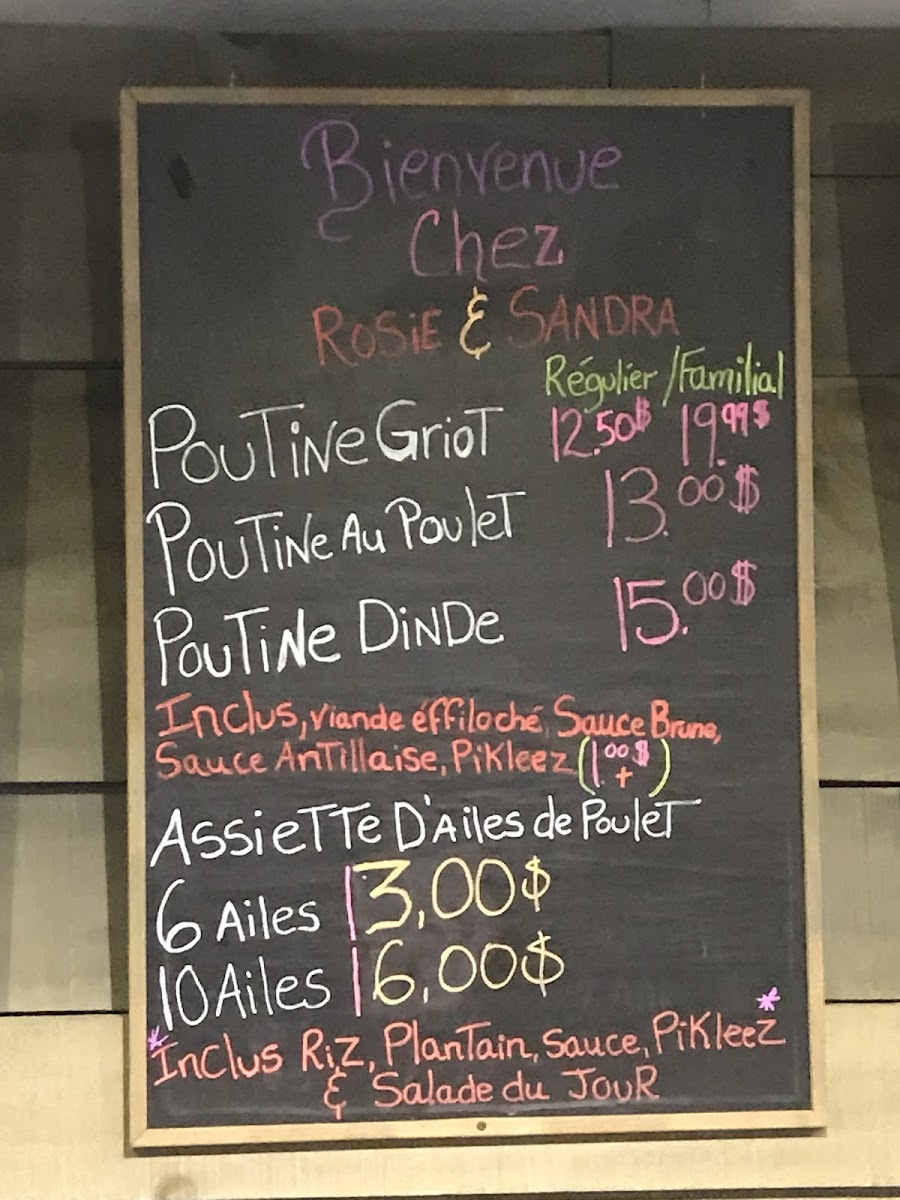 Bienvenue
Chez
ROSIE & SANDRA
Régulier / Familial
POUTINE GRIOT 12.50$ 19.99$
POUTINE AU POULET 13.00$
POUTINE DINDE 15.00$
Inclus, viande éffiloché, Sauce Brune,
Sauce Antillaise, Pikleez (1.00$ +)
Assiette D'Ailes de Poulet
6 Ailes 13,00$
10 Ailes 16,00$
*Inclus Riz, Plantain, Sauce, Pikleez*
& Salade du Jour